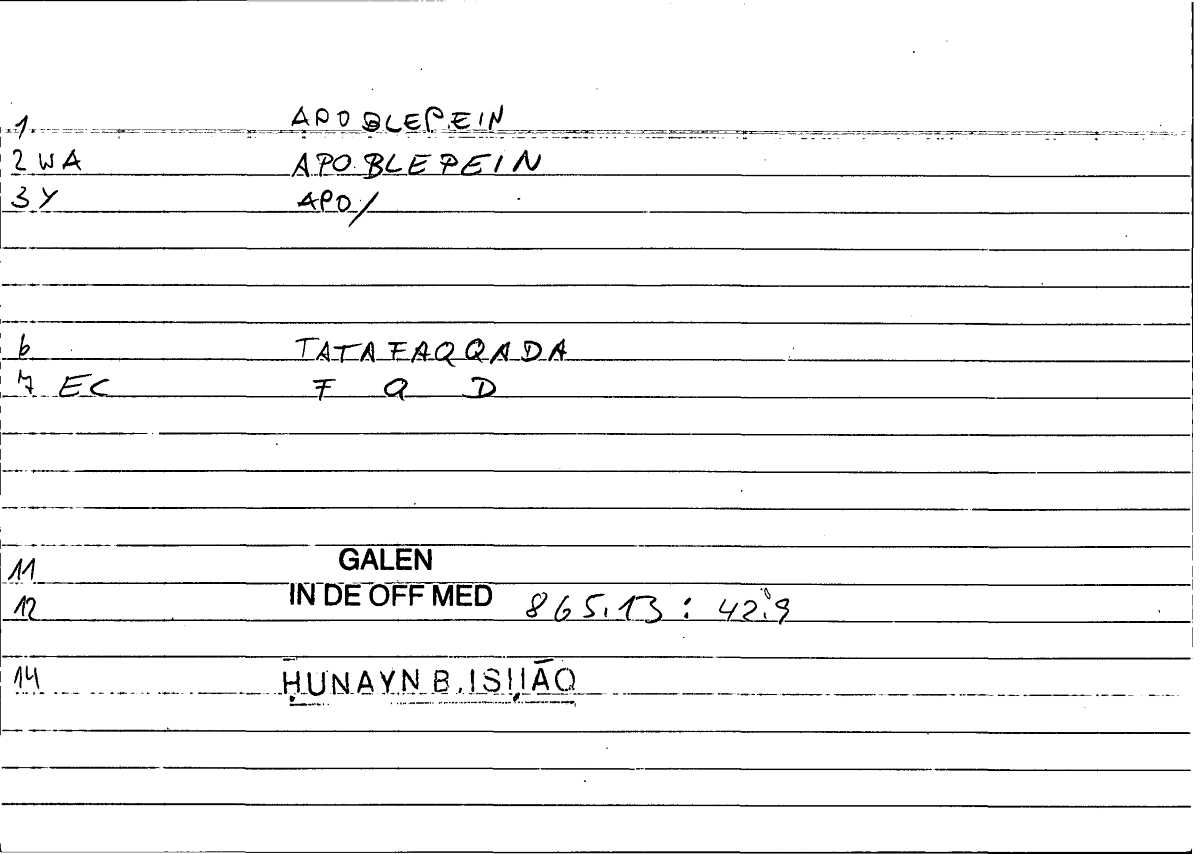 1. APOBLEPEIN
2 WA APOBLEPEIN
3 Y APO/
6 TATAFAQQADA
7 EC F Q D
11 GALEN
12 IN DE OFF MED 865.13 : 42.9
14 ḤUNAYN B. ISḤĀQ